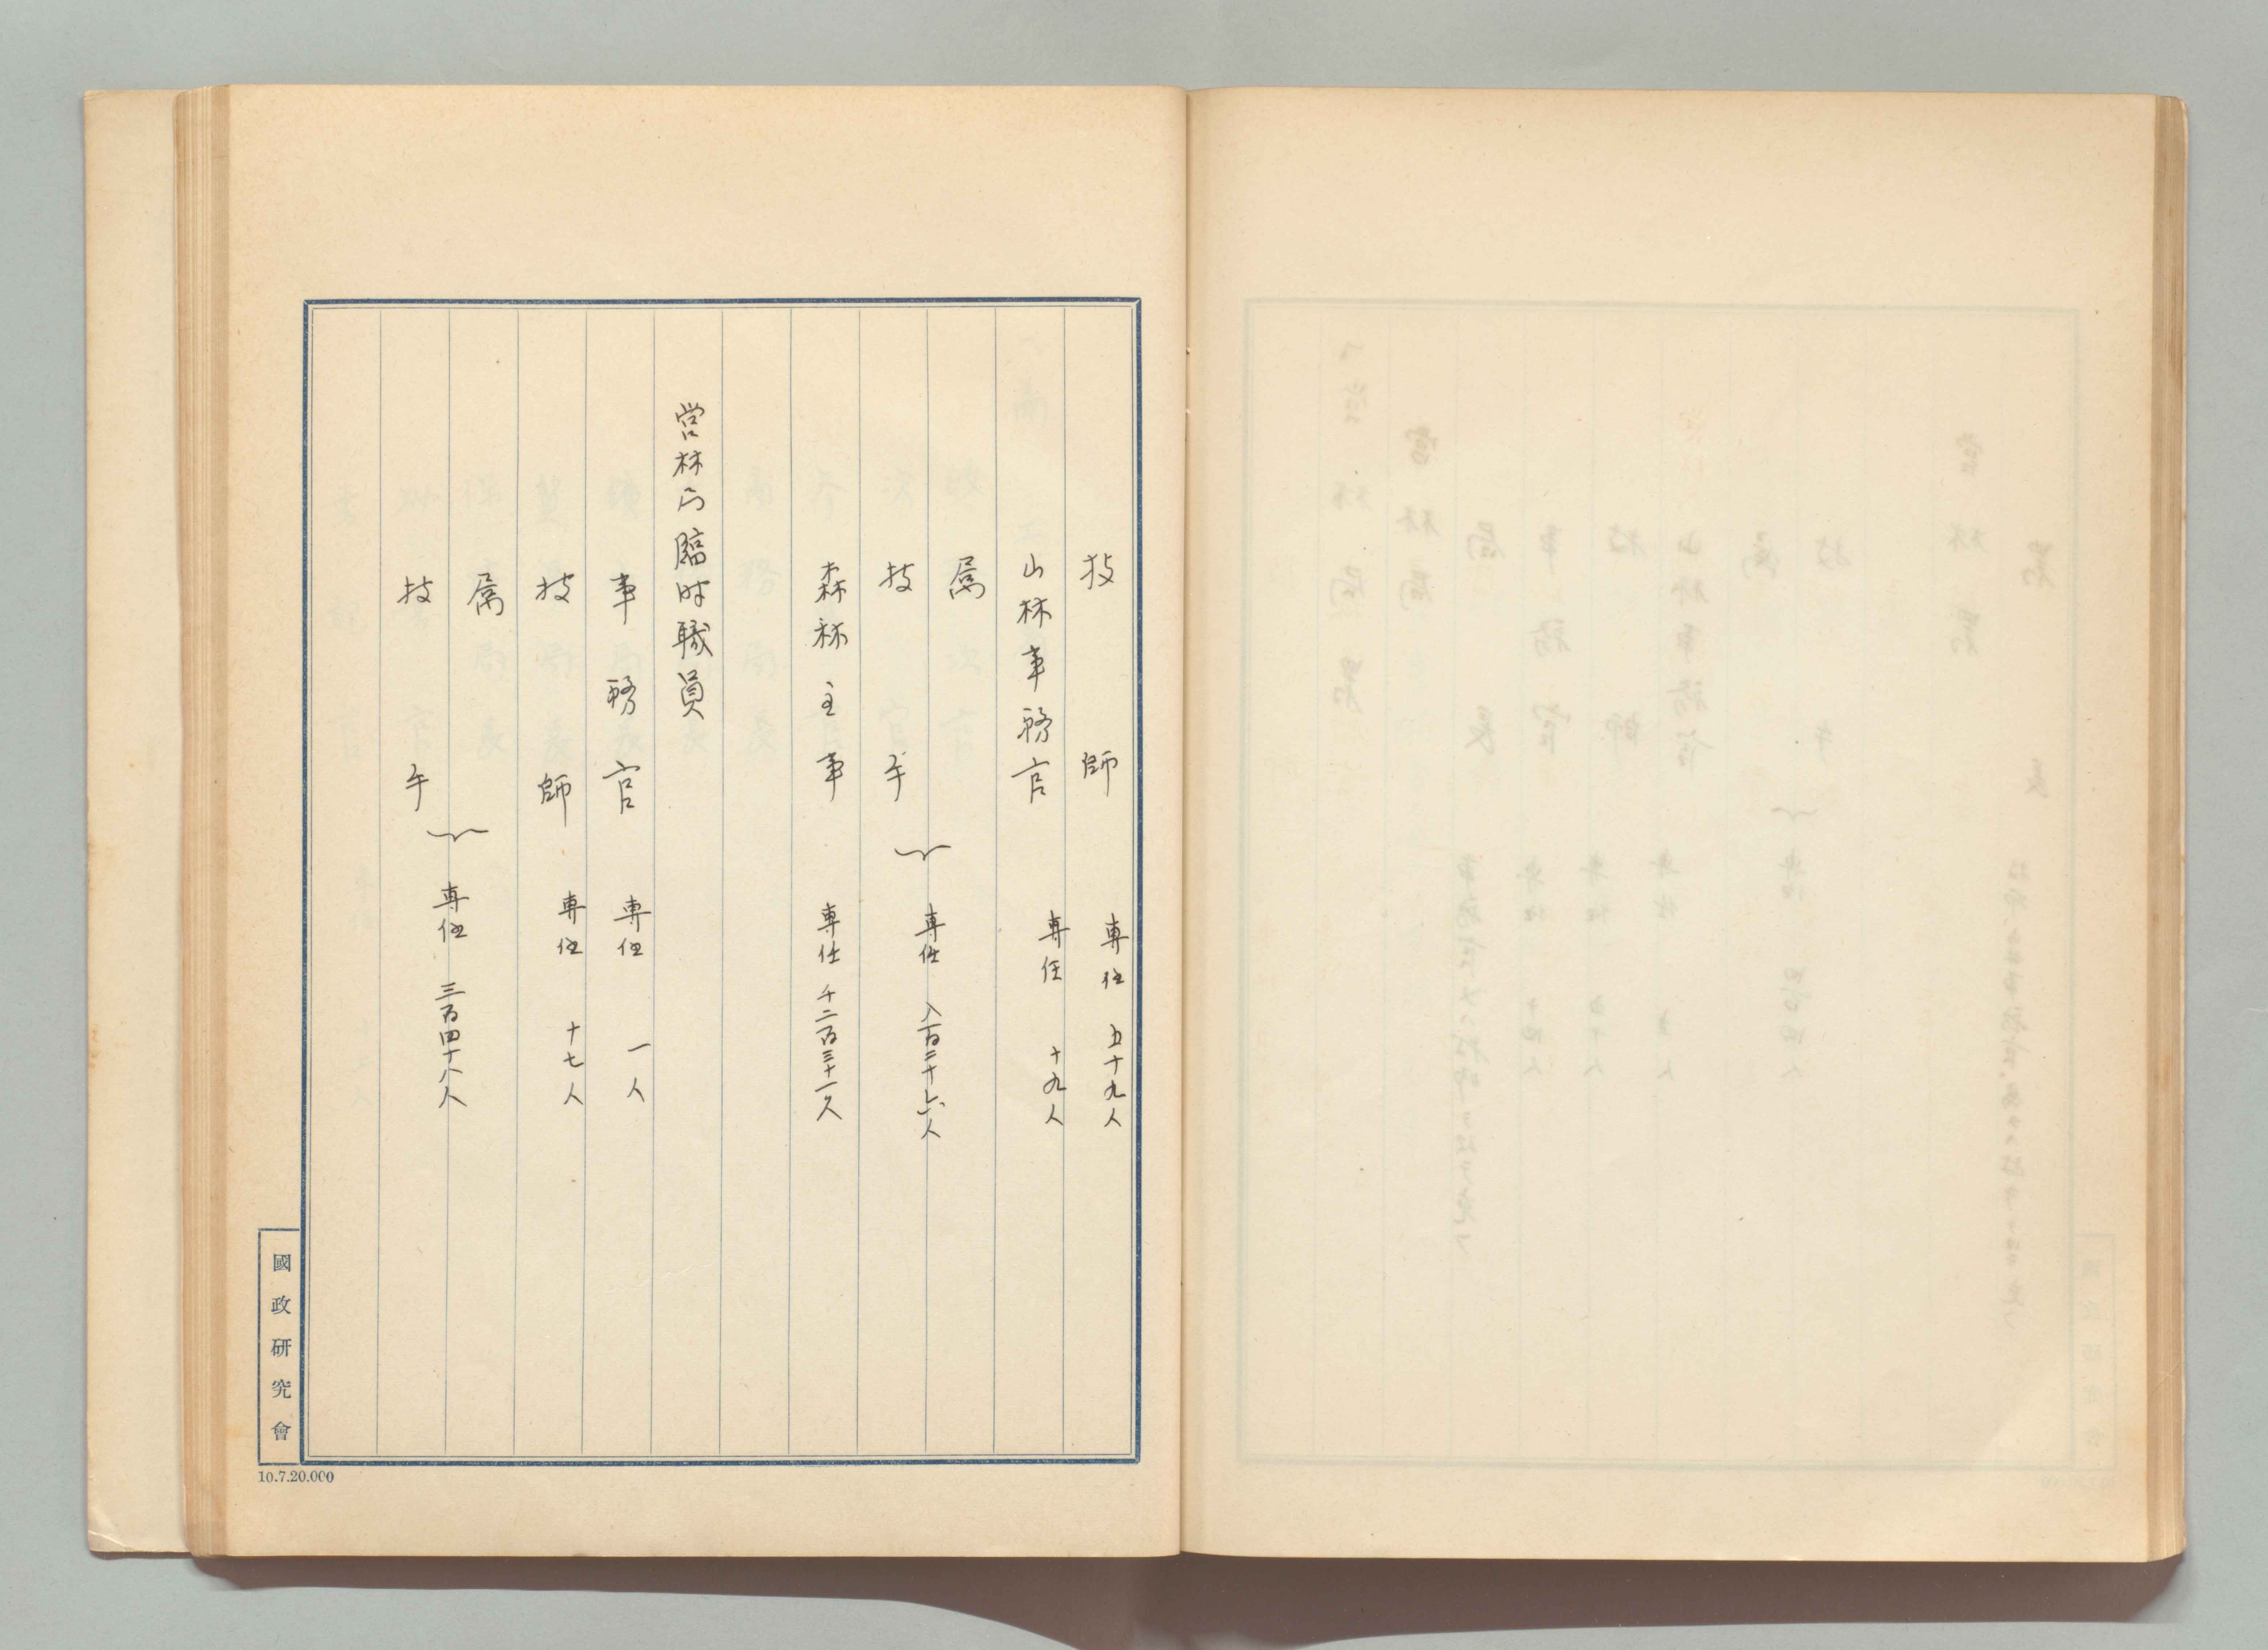 技師 専任 五十九人
山林事務官 専任 十九人
属
技手 専任 八百二十七人
森林主事 専任 千二百三十一人
営林局臨時職員
事務官 専任 一人
技師 専任 十七人
属
技手 専任 三百四十八人
國政研究會
10.7.20.000